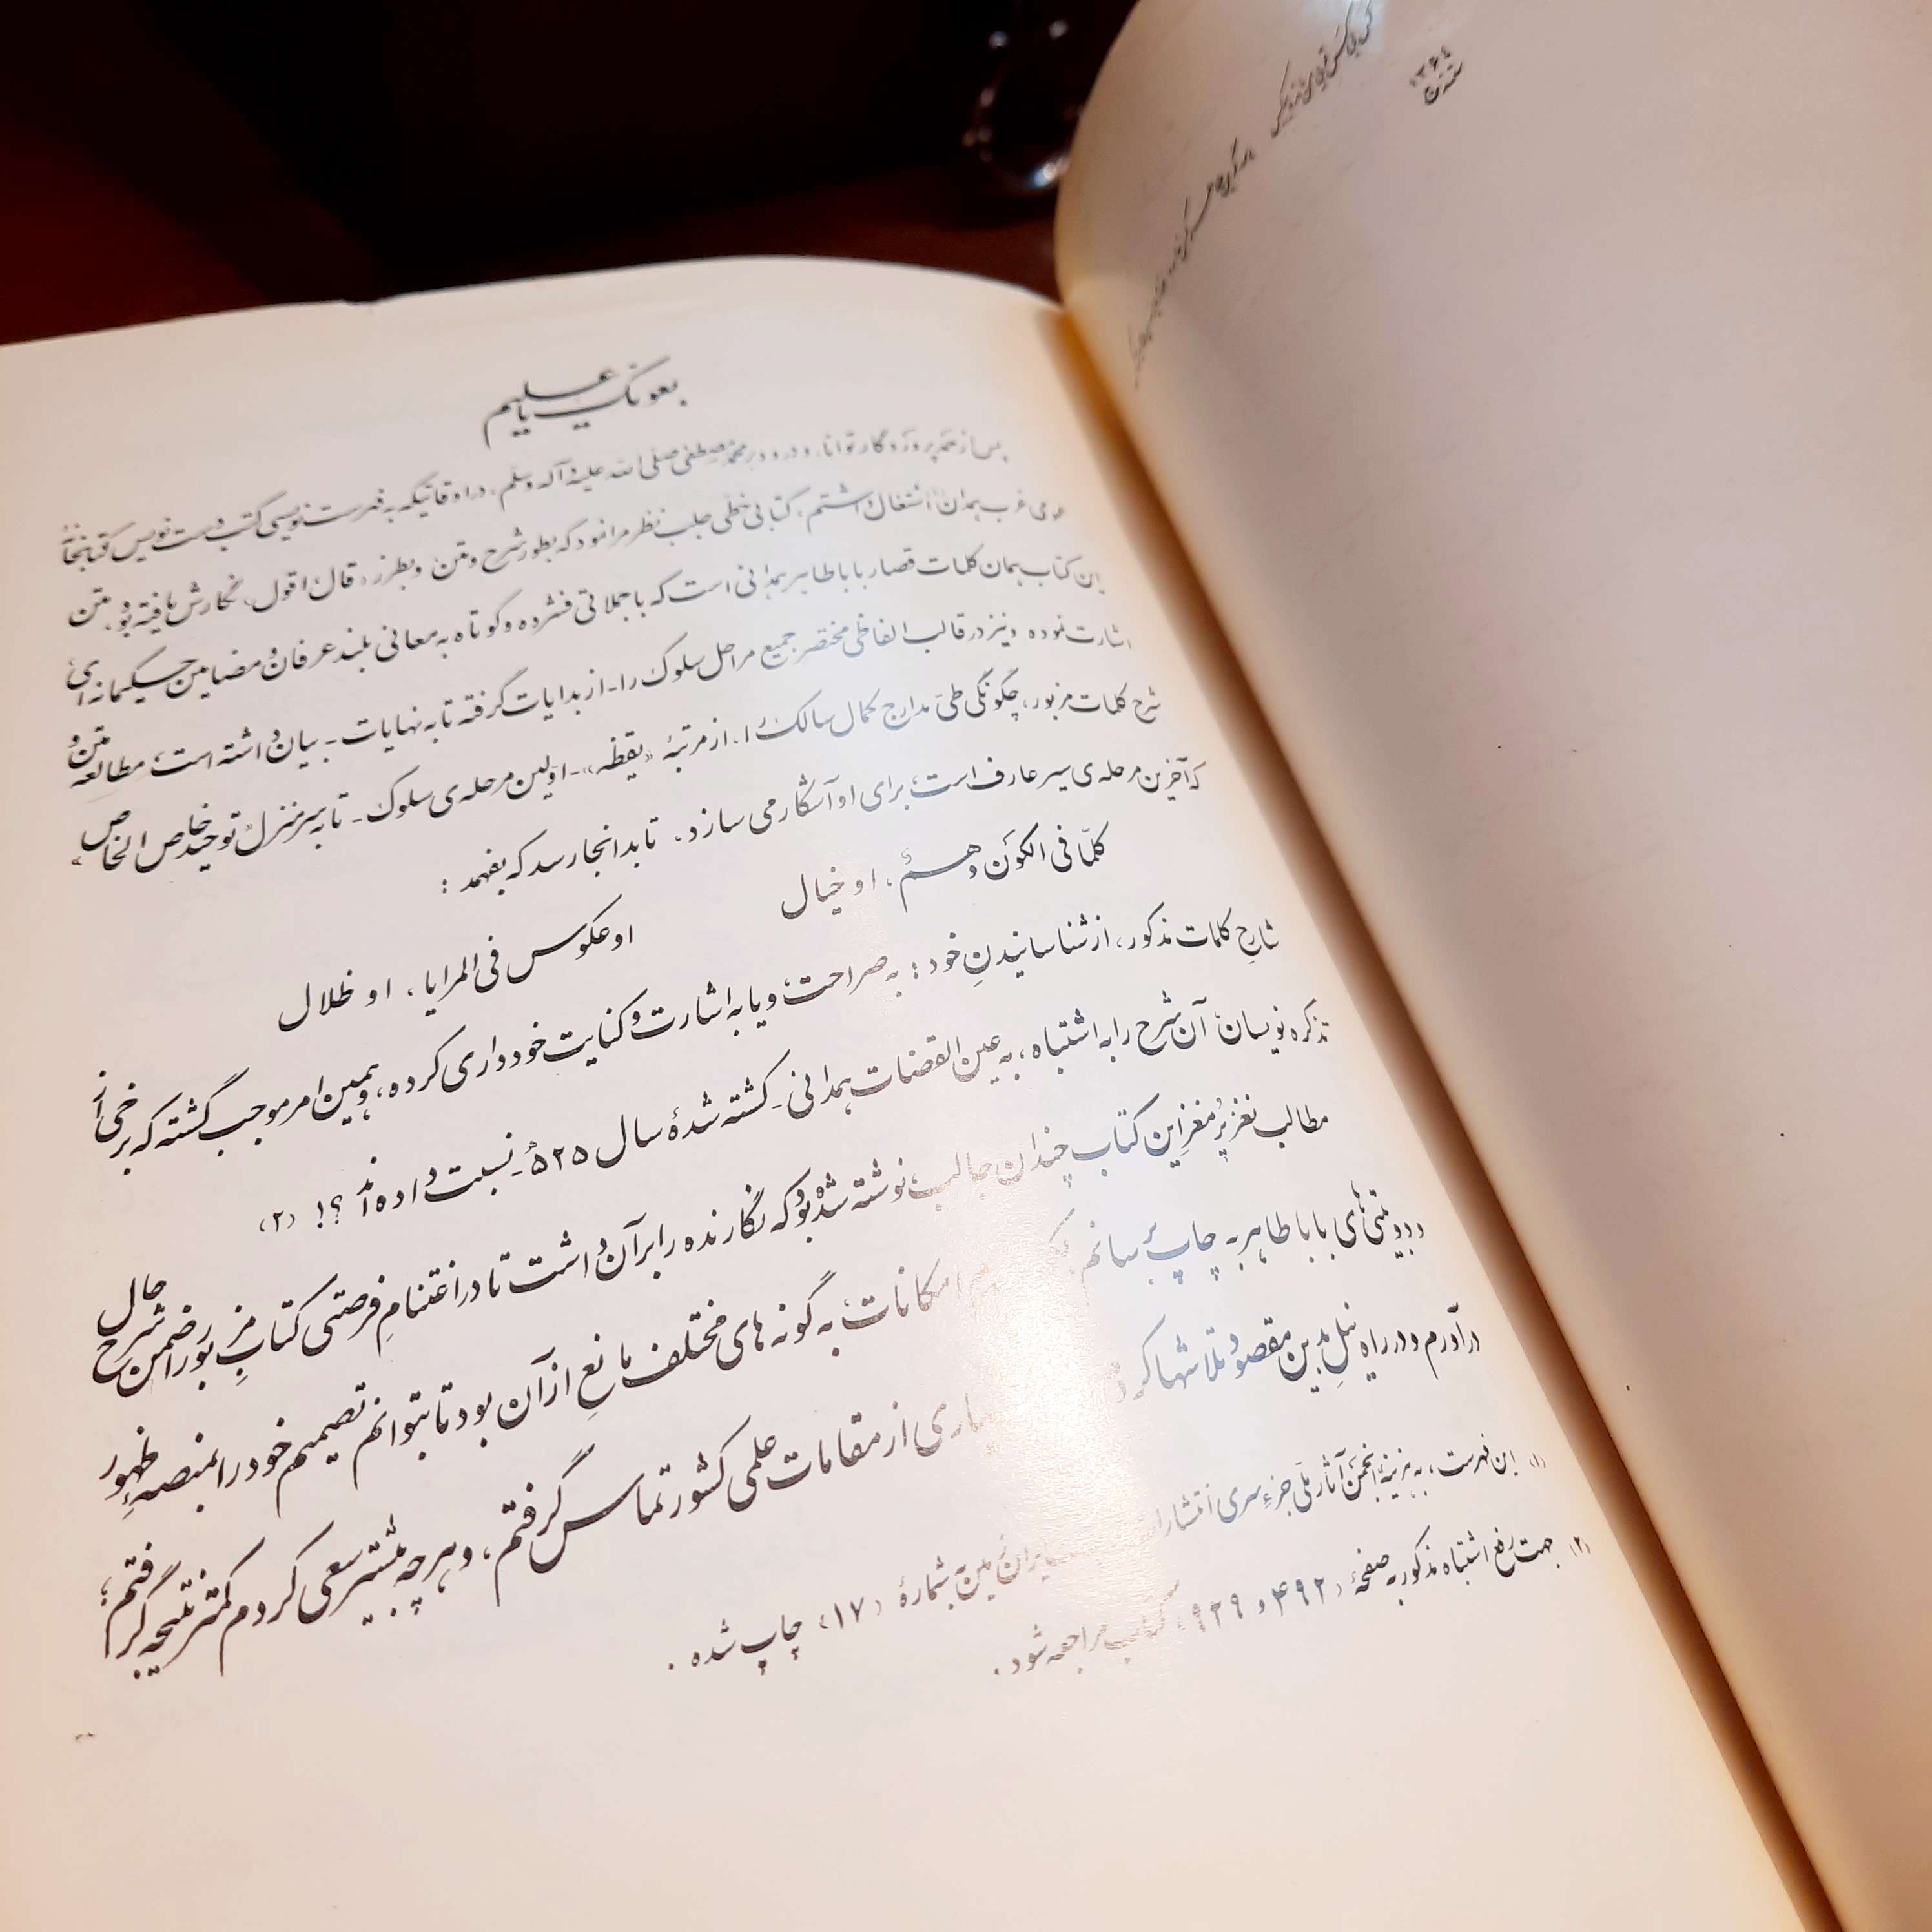 بعونک یا علیم
پس از حمد پروردگار توانا، و درود بر محمد مصطفی صلی الله علیه و آله و سلم، در اوقاتیکه به فهرست نویسی کتب دست نویس کتابخانهٔ
غرب همدان اشتغال داشتم، کتابی خطی جلب نظر مرا نمود که بطور شرح و متن و بطرز: قال اقول، نگارش یافته بود. متن
این کتاب همان کلمات قصار بابا طاهر همدانی است که با جملاتی فشرده و کوتاه به معانی بلند عرفان و مضامین حکیمانه ای
اشارت نموده و نیز در قالب الفاظی مختصر جمیع مراحل سلوک را - از بدایات گرفته تا به نهایات - بیان داشته است؛ مطالعه متن و
شرح کلمات مزبور، چگونگی طی مدارج کمال سالک را، از مرتبهٔ «یقظه» - اولین مرحله ی سلوک - تا به سر منزل توحید خاص الخاص»
که آخرین مرحله ی سیر عارف است، برای او آشکار می سازد. تا بدانجا رسد که بفهمد:
کلما فی الکون وهم، او خیال
او عکوس فی المرایا، او ظلال
شارح کلمات مذکور، از شناسانیدن خود: به صراحت، و یا به اشارت و کنایت خودداری کرده، و همین امر موجب گشته که برخی از
تذکره نویسان آن شرح را به اشتباه، به عین القضات همدانی - کشته شدهٔ سال ۵۲۵ - نسبت داده اند؟! (۲)
مطالب نغز پر مغز این کتاب چندان جالب نوشته شده بود که نگارنده را بر آن داشت تا در اغتنام فرصتی کتاب مزبور را ضمن شرح حال
و دوبیتی های بابا طاهر به چاپ برسانم امکانات، به گونه های مختلف مانع از آن بود تا بتوانم تصمیم خود را بمنصهٔ ظهور
درآورم و در راه نیل بدین مقصود تلاشها از مقامات علمی کشور تماس گرفتم، و هر چه بیشتر سعی کردم کمتر نتیجه گرفتم؛
(۱) این فهرست، به هزینهٔ انجمن آثار ملی جزء سری ایران زمین به شمارهٔ (۱۷) چاپ شده.
(۲) جهت رفع اشتباه مذکور به صفحهٔ (۴۹۲ و ۹۳۹) مراجعه شود.